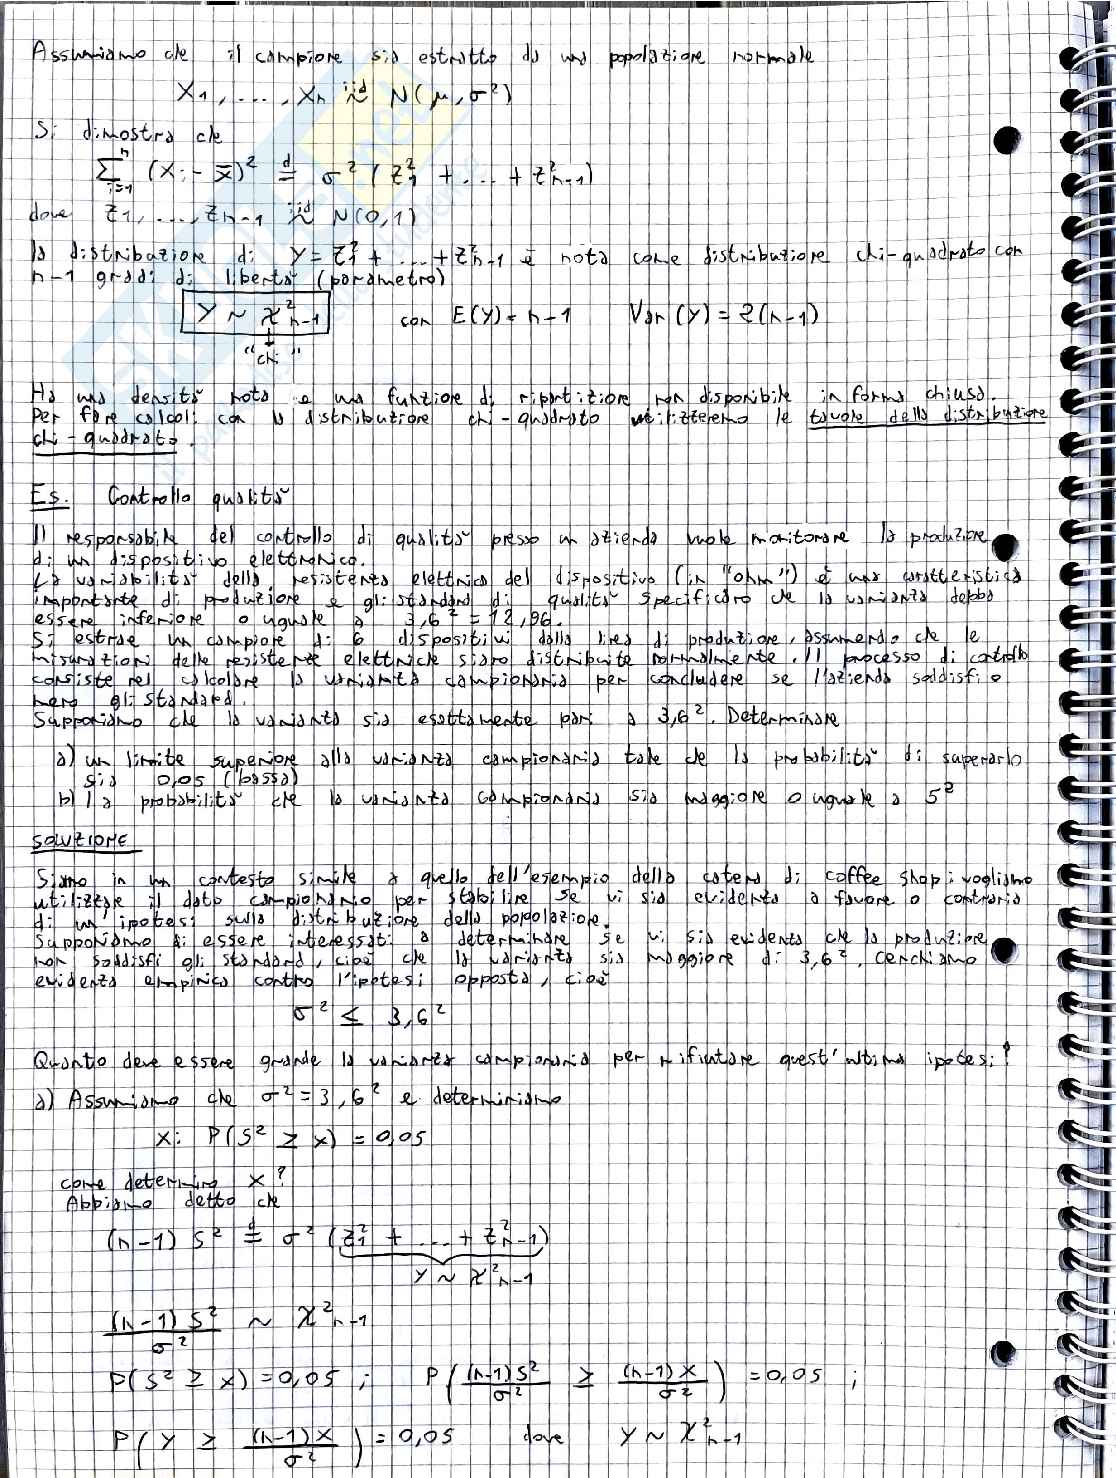 Assumiamo che il campione sia estratto da una popolazione normale
X1, ..., Xn iid ~ N(μ, σ²)
Si dimostra che
∑ⁿᵢ₌₁ (Xi - X̄)² d= σ² (Z²1 + ... + Z²n-1)
dove Z1, ..., Zn-1 iid ~ N(0,1)
la distribuzione di Y = Z²1 + ... + Z²n-1 è nota come distribuzione chi-quadrato con
n-1 gradi di libertà (parametro)
Y ~ χ²n-1 con E(Y) = n-1 Var(Y) = 2(n-1)
"chi"
Ha una densità nota e una funzione di ripartizione non disponibile in forma chiusa.
Per fare calcoli con la distribuzione chi-quadrato utilizzeremo le tavole della distribuzione
chi-quadrato.
Es. Controllo qualità
Il responsabile del controllo di qualità presso un azienda vuole monitorare la produzione
di un dispositivo elettronico.
La variabilità della resistenza elettrica del dispositivo (in "ohm") è una caratteristica
importante di produzione e gli standard di qualità specificano che la varianza debba
essere inferiore o uguale a 3,6² = 12,96.
Si estrae un campione di 6 dispositivi dalla linea di produzione, assumendo che le
misurazioni delle resistenze elettriche siano distribuite normalmente. Il processo di controllo
consiste nel calcolare la varianza campionaria per concludere se l'azienda soddisfi o
meno gli standard.
Supponiamo che la varianza sia esattamente pari a 3,6². Determinare
a) un limite superiore alla varianza campionaria tale che la probabilità di superarlo
sia 0,05 (bassa)
b) la probabilità che la varianza campionaria sia maggiore o uguale a 5²
SOLUZIONE
Siamo in un contesto simile a quello dell'esempio della catena di coffee shop: vogliamo
utilizzare il dato campionario per stabilire se vi sia evidenza a favore o contraria
di un'ipotesi sulla distribuzione della popolazione.
Supponiamo di essere interessati a determinare se vi sia evidenza che la produzione
non soddisfi gli standard, cioè che la varianza sia maggiore di 3,6². Cerchiamo
evidenza empirica contro l'ipotesi opposta, cioè
σ² ≤ 3,6²
Quanto deve essere grande la varianza campionaria per rifiutare quest'ultima ipotesi?
a) Assumiamo che σ² = 3,6² e determiniamo
x: P(S² ≥ x) = 0,05
come determino x?
Abbiamo detto che
(n-1) S² d= σ² (Z²1 + ... + Z²n-1)
Y ~ χ²n-1
(n-1) S² / σ² ~ χ²n-1
P(S² ≥ x) = 0,05 ; P( (n-1)S² / σ² ≥ (n-1)x / σ² ) = 0,05 ;
P( Y ≥ (n-1)x / σ² ) = 0,05 dove Y ~ χ²n-1